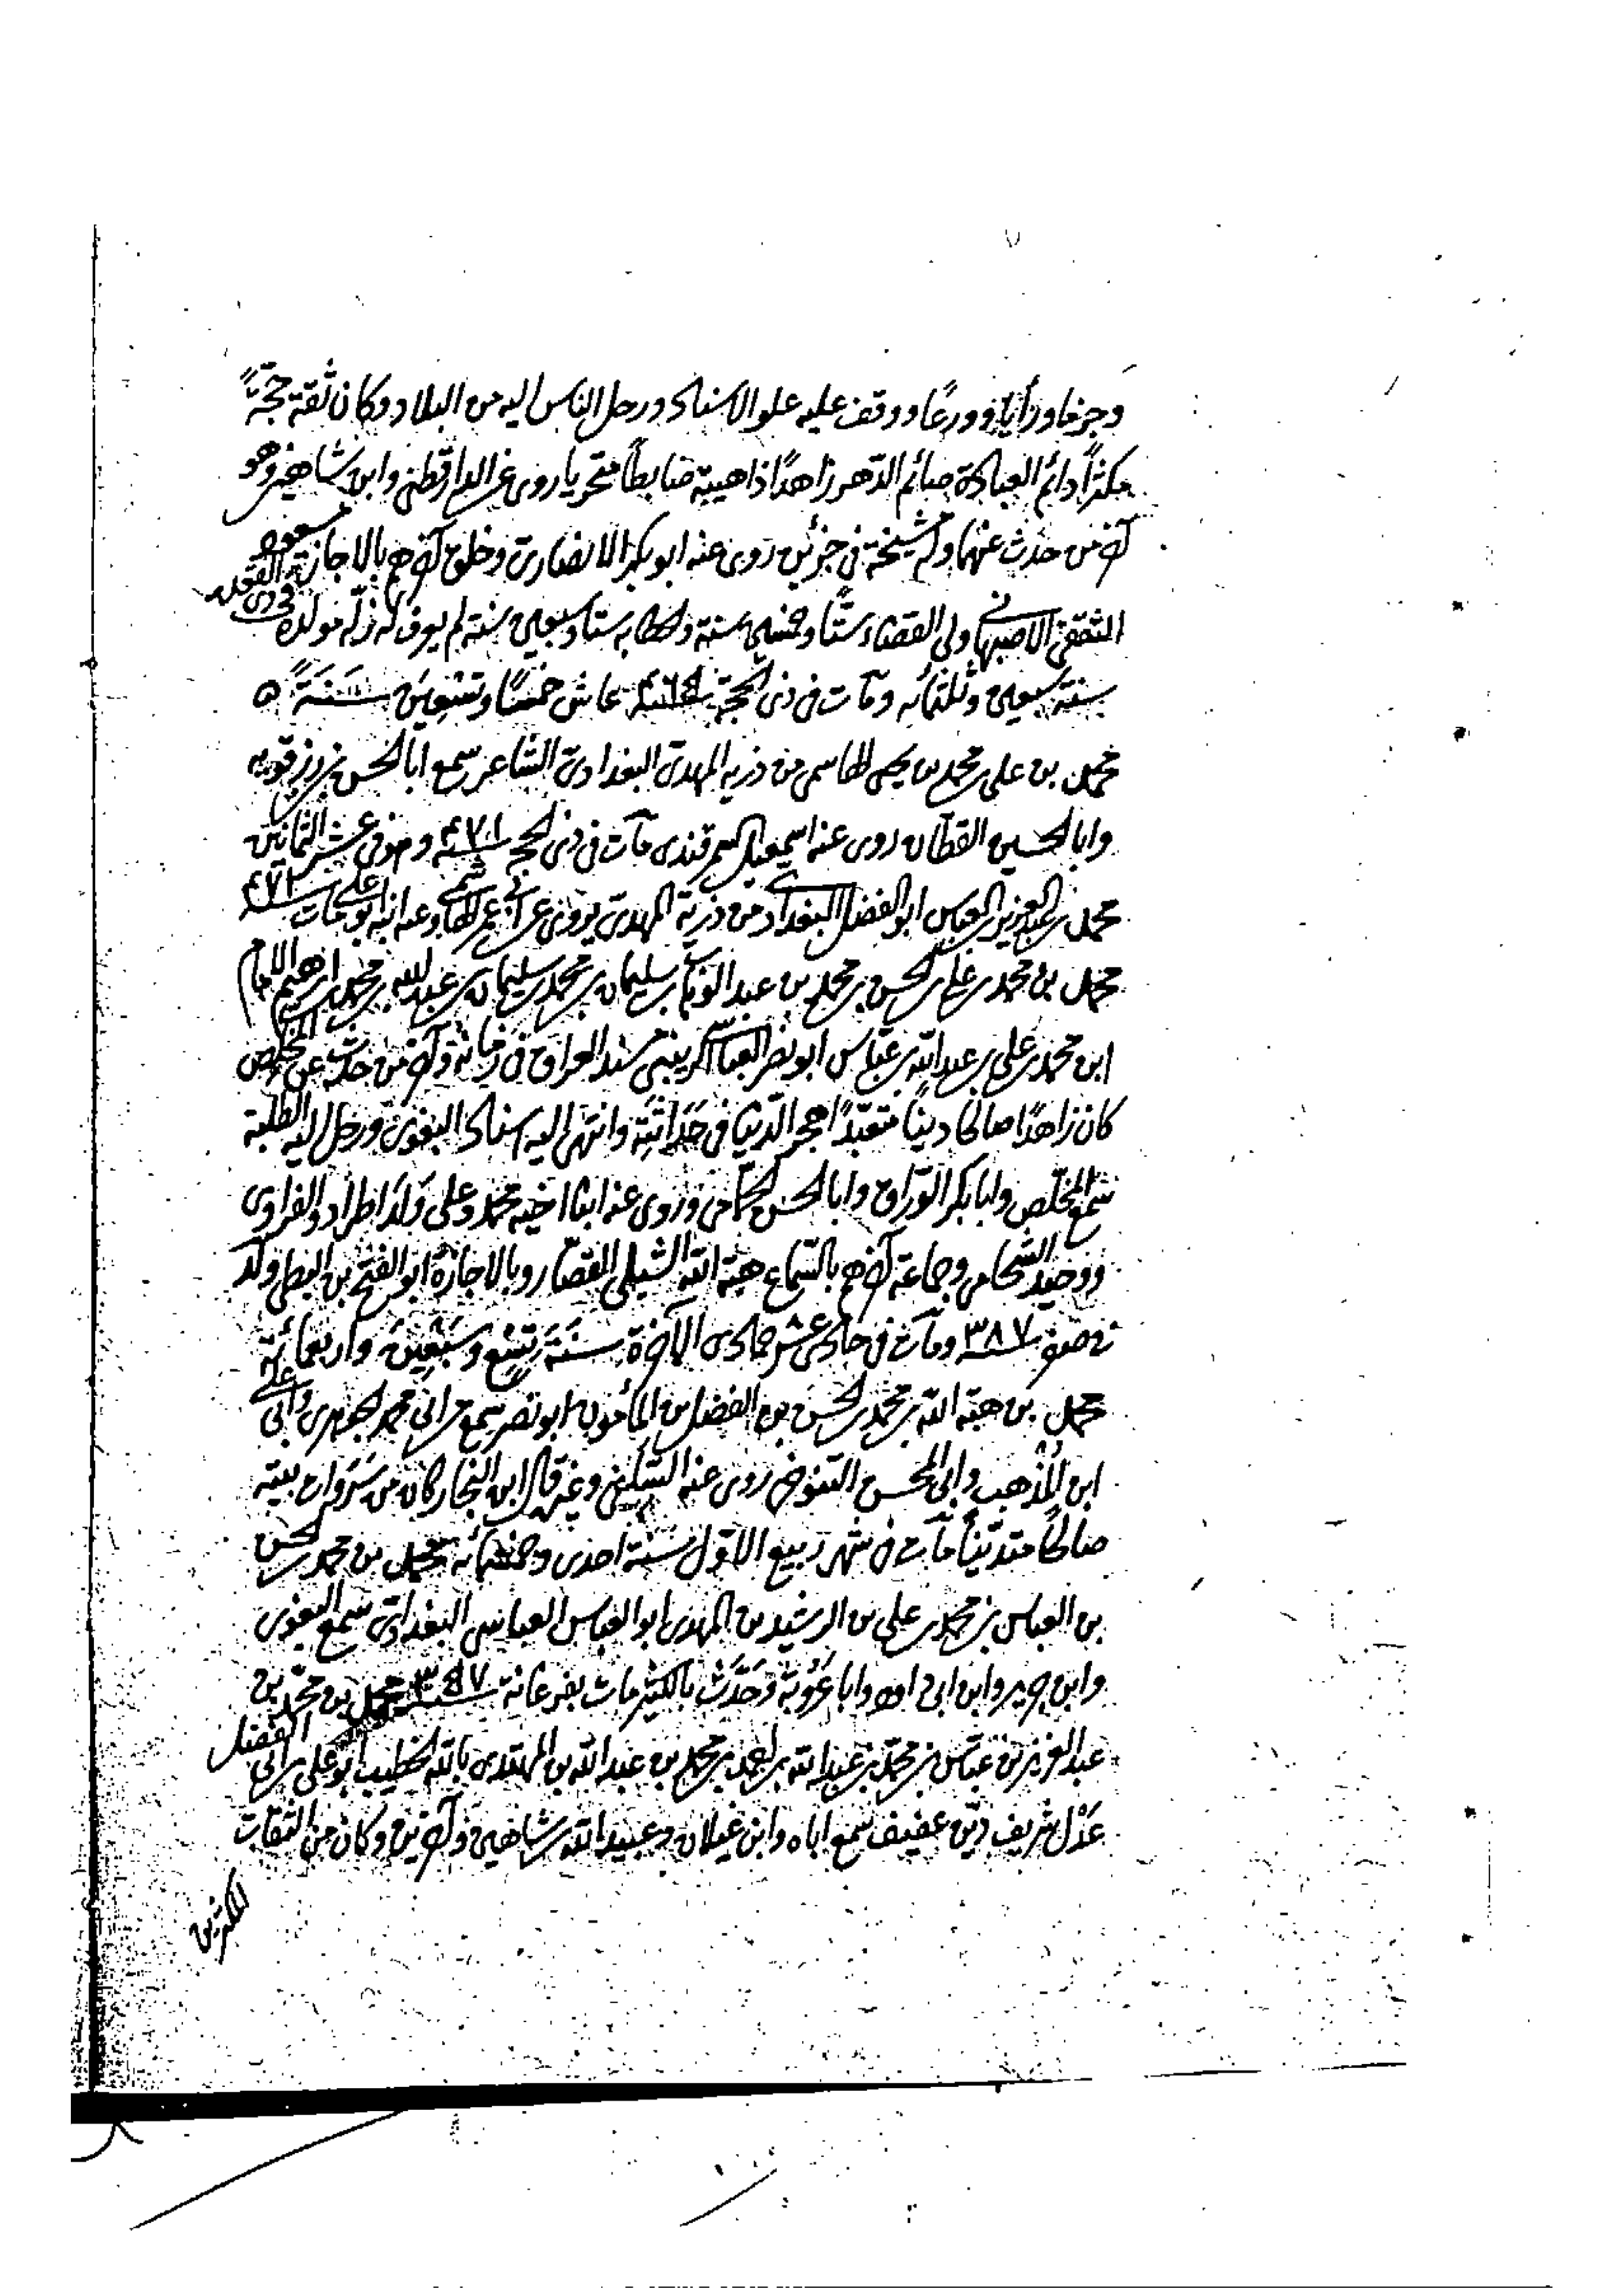 وحزما ورأيا وورعًا ووقف عليه علو الاسناد ورحل الناس اليه من البلاد وكان ثقة حجّةً
مكثرًا دائم العبادة صائم الدّهر زاهدًا ذا هيبة ضابطًا متحريا روى عن الدارقطني وابن شاهين وهو
آخر من حدث عنهما وله مشيخة في جزئين روى عنه ابو بكر الانصاري وخلق آخرهم بالاجازة مسعود
الثقفي الاصبهاني ولي القضاء ستًّا وخمسين سنة وخطابه ستا وسبعين سنة لم يعرف له زلّة مولده في ذي القعدة
سنة سبعين وثلثمائه ومات في ذي الحجّة عاش خمسًا وتسعين سَنَةً ٥
محمد بن علي بن محمد بن يحيى الهاشمي من ذرية المهدي البغدادي الشاعر سمع ابا الحسن بن رزقويه
وابا الحسين القطان روى عنه اسمعيل السمرقندي مات في ذي الحجة ٤٧١ وهو في عشر الثمانين
محمد بن عبد العزيز بن العباس ابو الفضل البغدادي من ذرية المهدي يروي عن ابي عمر الهاشمي وعنه ابنه ابو علي مات
محمد بن محمد بن علي بن الحسن بن محمد بن عبد الوهاب بن سليمان بن محمد بن سليمان بن عبد الله بن محمد بن ابرهيم الامام
ابن محمد بن علي بن عبد الله بن عباس ابو نصر العباسي الزينبي مسند العراق في زمانه وآخر من حدث عن المخلص
كان زاهدًا صالحا دينًا متعبّدًا هجر الدّنيا في حَدَاثَتِه وانتهى اليه اسناد البغوي ورحل اليه الطلبة
سمع المخلّص وابا بكر الورّاق وابا الحسن الحمّامي وروى عنه ابنا اخيه محمد وعلي وَلَدَا طراد والفراوي
ووجيه الشحامي وجماعة آخرهم بالسّماع هبة الله الشبلي القصّار وبالاجازة ابو الفتح بن البطي ولد
في صفر ٣٨٧ ومات في حادي عشر جمادى الآخرة سَنَةَ تِسْع وسَبْعِينَ واربعمائة
محمد بن هبة الله بن محمد بن الحسن بن الفضل بن المأمون ابو نصر سمع من ابي محمد الجوهري وابي علي
ابن المُذْهِب وابي المحسن التنوخي روى عنه السِّلفي وغيره قال ابن النجار كان من سَرَوات بيته
صالحًا متديّنًا مات في شهر ربيع الاوّل سنة احدى وخمسمائه محمد بن محمد بن الحسن
بن العباس بن محمد بن علي بن الرشيد بن المهدي ابو العباس العباسي البغدادي سمع البغوي
وابن جرير وابن ابي داود وابا عَرُوبَة وَحَدَّثَ بالكثير مات بفرغانة محمد بن محمد بن
عبد العزيز بن عبّاس بن محمّد بن عبد الله بن احمد بن محمد بن عبد الله بن المهتدي بالله الخطيب ابو علي بن ابي الفضل
عَدْل شريف ديّن عفيف سمع اباه وابن غيلان وعبيد الله بن شاهين وآخرين وكان من الثقات
المكثرين